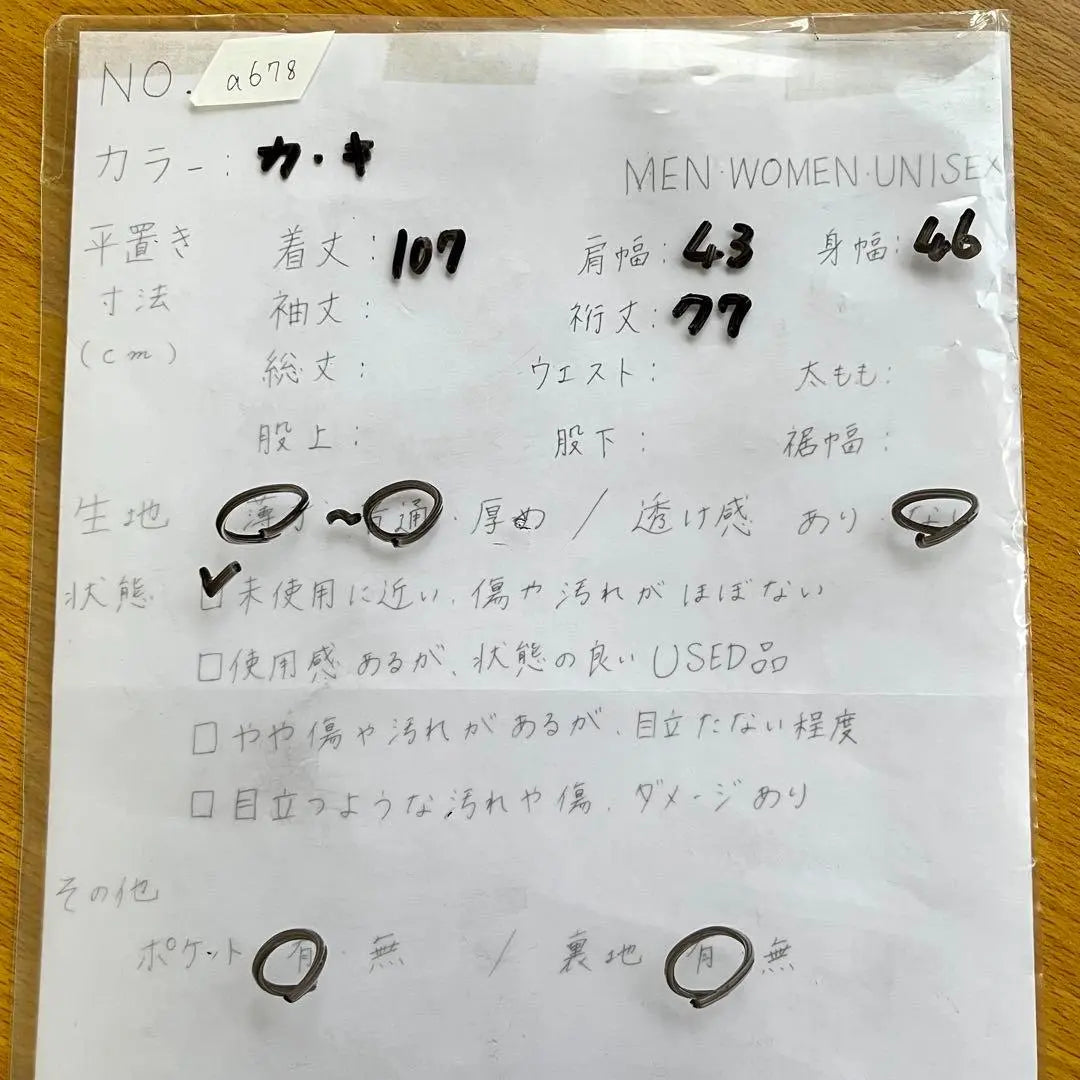 NO. a678
カラー: カ・キ
MEN・WOMEN・UNISEX
平置き 着丈: 107 肩幅: 43 身幅: 46
寸法 袖丈: 裄丈: 77
(cm) 総丈: ウエスト: 太もも:
股上: 股下: 裾幅:
生地 薄 ~ 普通・厚め / 透け感 あり・なし
状態 ☑未使用に近い、傷や汚れがほぼない
□使用感あるが、状態の良いUSED品
□やや傷や汚れがあるが、目立たない程度
□目立つような汚れや傷、ダメージあり
その他
ポケット 有・無 / 裏地 有・無